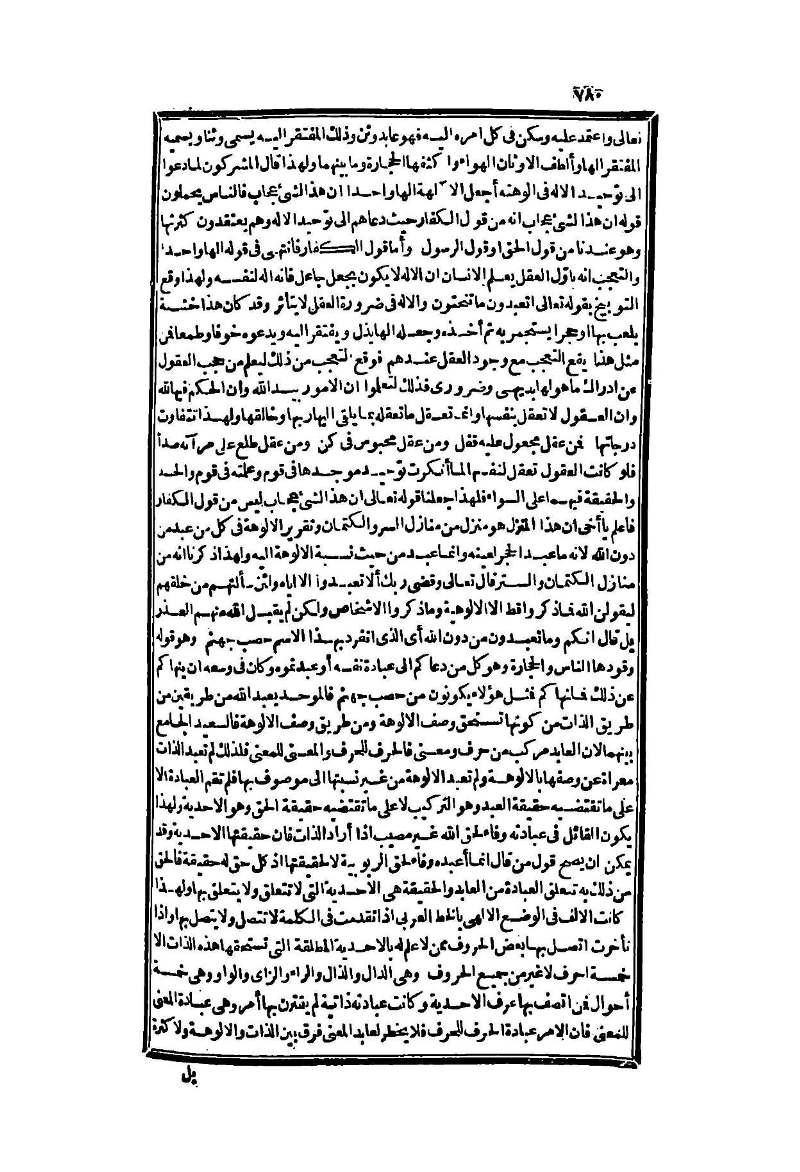 ٧٨٠
تعالى واعتمد عليه وسكن فى كل امره اليه فهو عابد وثن وذلك المفتقر اليه يسمى وثنا ويسميه
المفتقر الها وألطف الاوثان الهواء واكثفها الحجارة وما بينهما ولهذا قال المشركون لما دعوا
الى توحيد الاله فى الوهته أجعل الآلهة الها واحدا ان هذا لشئ عجاب فالناس يحملون
قوله ان هذا لشئ عجاب انه من قول الكفار حيث دعاهم الى توحيد الاله وهم يعتقدون كثرتها
وهو عندنا من قول الحق او قول الرسول وأما قول الكفار فانتهى فى قوله الها واحدا
والتعجب انه باول العقل يعلم الانسان ان الاله لا يكون بجعل جاعل فانه اله لنفسه ولهذا وقع
التوبيخ بقوله تعالى اتعبدون ما تنحتون والاله فى ضرورة العقل لا يتأثر وقد كان هذا خشبة
يلعب بها او حجرا يستجمر به ثم أخذه وجعله الها يذل ويفتقر اليه ويدعوه خوفا وطمعا فمن
مثل هذا يقع التعجب مع وجود العقل عندهم فوقع التعجب من ذلك ليعلم من حجب العقول
عن ادراك ما هو لها بديهى وضرورى فذلك لتعلموا ان الامور بيد الله وان الحكم فيها لله
وان العقول لا تعقل بنفسها وانما تعقل ما تعقله بما يلقى اليها ربها وخالقها ولهذا تتفاوت
درجاتها فمن عقل مجعول عليه قفل ومن عقل محبوس فى كن ومن عقل طلع على مرآته صدأ
فلو كانت العقول تعقل لنفسها لما أنكرت توحيد موجدها فى قوم وعلمته فى قوم والحد
والحقيقة فيهما على السواء فلهذا جعلنا قوله تعالى ان هذا لشئ عجاب ليس من قول الكفار
فاعلم يا أخى ان هذا المنزل هو منزل من منازل السر والكتمان وتقرير الالوهة فى كل من عبد من
دون الله لانه ما عبد الحجر لعينه وانما عبد من حيث نسبة الالوهة اليه ولهذا ذكرنا انه من
منازل الكتمان والستر قال تعالى وقضى ربك ألا تعبدوا الا اياه ولئن سألتهم من خلقهم
ليقولن الله فما ذكروا قط الا الالوهية وما ذكروا الاشخاص ولكن لم يقبل الله منهم العذر
بل قال انكم وما تعبدون من دون الله أى الذى انفرد بهذا الاسم حصب جهنم وهو قوله
وقودها الناس والحجارة وهو كل من دعاكم الى عبادة نفسه أو عبدتموه وكان فى وسعه ان ينهاكم
عن ذلك فما نهاكم فمثل هؤلاء يكونون من حصب جهنم فالموحد يعبد الله من طريقين من
طريق الذات من كونها تستحق وصف الالوهة ومن طريق وصف الالوهة فالسعيد الجامع
بينهما لان العابد مركب من حرف ومعنى فالحرف للحرف والمعنى للمعنى فلذلك لم تعبد الذات
معراة عن وصفها بالالوهة ولم تعبد الالوهة من غير نسبتها الى موصوف بها فلم تقم العبادة الا
على ما تقتضيه حقيقة العبد وهو التركيب لا على ما تقتضيه حقيقة الحق وهو الاحدية ولهذا
يكون القائل فى عبادته وفاء لحق الله غير مصيب اذا أراد الذات فان حقيقتها الاحدية وقد
يمكن ان يصح قول من قال انما أعبده وفاء لحق الربوبية لا لحقيقتها اذ كل حق له حقيقة فالحق
من ذلك به تتعلق العبادة من العابد والحقيقة هى الاحدية التى لا تتعلق ولا يتعلق بها ولهذا
كانت الالف فى الوضع الالهى بالخط العربى اذا تقدمت فى الكلمة لا تتصل ولا يتصل بها واذا
تأخرت اتصل بها بعض الحروف ممن لا علم له بالاحدية المطلقة التى تستحقها هذه الذات الا
خمسة احرف لا غير من جميع الحروف وهى الدال والذال والراء والزاى والواو وهى خمسة
أحوال فمن اتصف بها عرف الاحدية وكانت عبادته ذاتية لم يقترن بها أمر وهى عبادة المعنى
للمعنى فان الامر عبادة الحرف للحرف فلا يخطر لعابد المعنى فرق بين الذات والالوهة ولا كثرة
بل